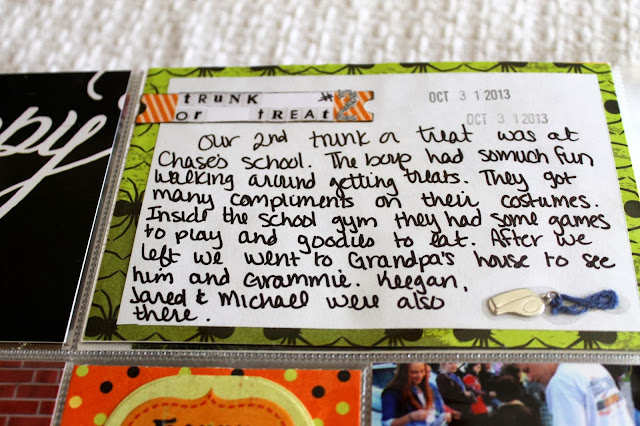 TRUNK #2
OR TREAT
OCT 3 1 2013
OCT 3 1 2013
Our 2nd trunk or treat was at
Chase's school. The boys had somuch fun
walking around getting treats. They got
many compliments on their costumes.
Inside the school gym they had some games
to play and goodies to eat. After we
left we went to Grandpa's house to see
him and Grammie. Keegan,
Jared & Michael were also
there.